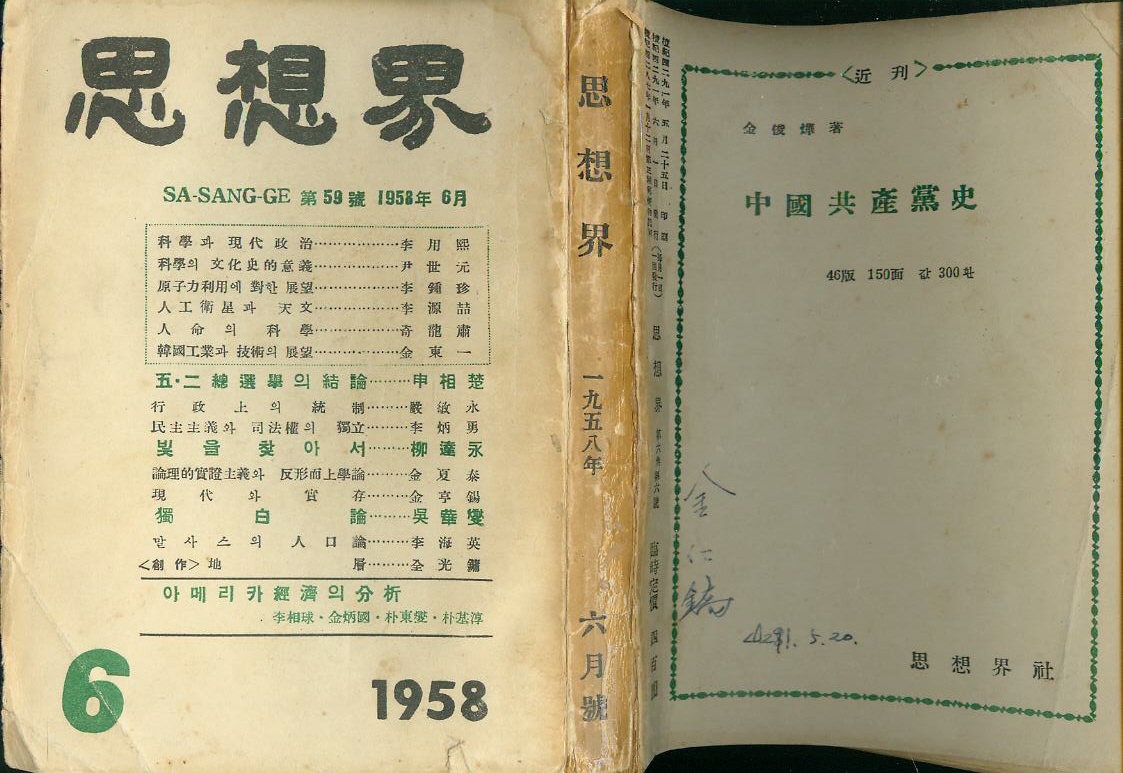 思想界
SA-SANG-GE 第59號 1958年 6月
科學과 現代政治……………李用熙
科學의 文化史的意義……………尹世元
原子力利用에 對한 展望……………李鍾珍
人工衛星과 天文……………李源喆
人命의 科學……………奇龍肅
韓國工業과 技術의 展望……………金東一
五·二總選擧의 結論………申相楚
行政上의 統制………嚴敏永
民主主義와 司法權의 獨立………李炳勇
빛을 찾아서………柳達永
論理的實證主義와 反形而上學論………金夏泰
現代와 實存………金亨錫
獨白論………吳華燮
말사스의 人口論………李海英
<創作> 地層………全光鏞
아메리카經濟의分析
李相球·金炳國·朴東燮·朴基淳
6
1958
思想界 一九五八年 六月號
檀紀四二九一年 五月二十五日 印刷
檀紀四二九一年 六月一日 發行 (每月一回一日發行)
思想界 第六卷第六號 臨時定價 四百圜
<近刊>
金俊燁著
中國共產黨史
46版 150面 값 300환
金仁鎬
4291. 5. 20.
思想界社